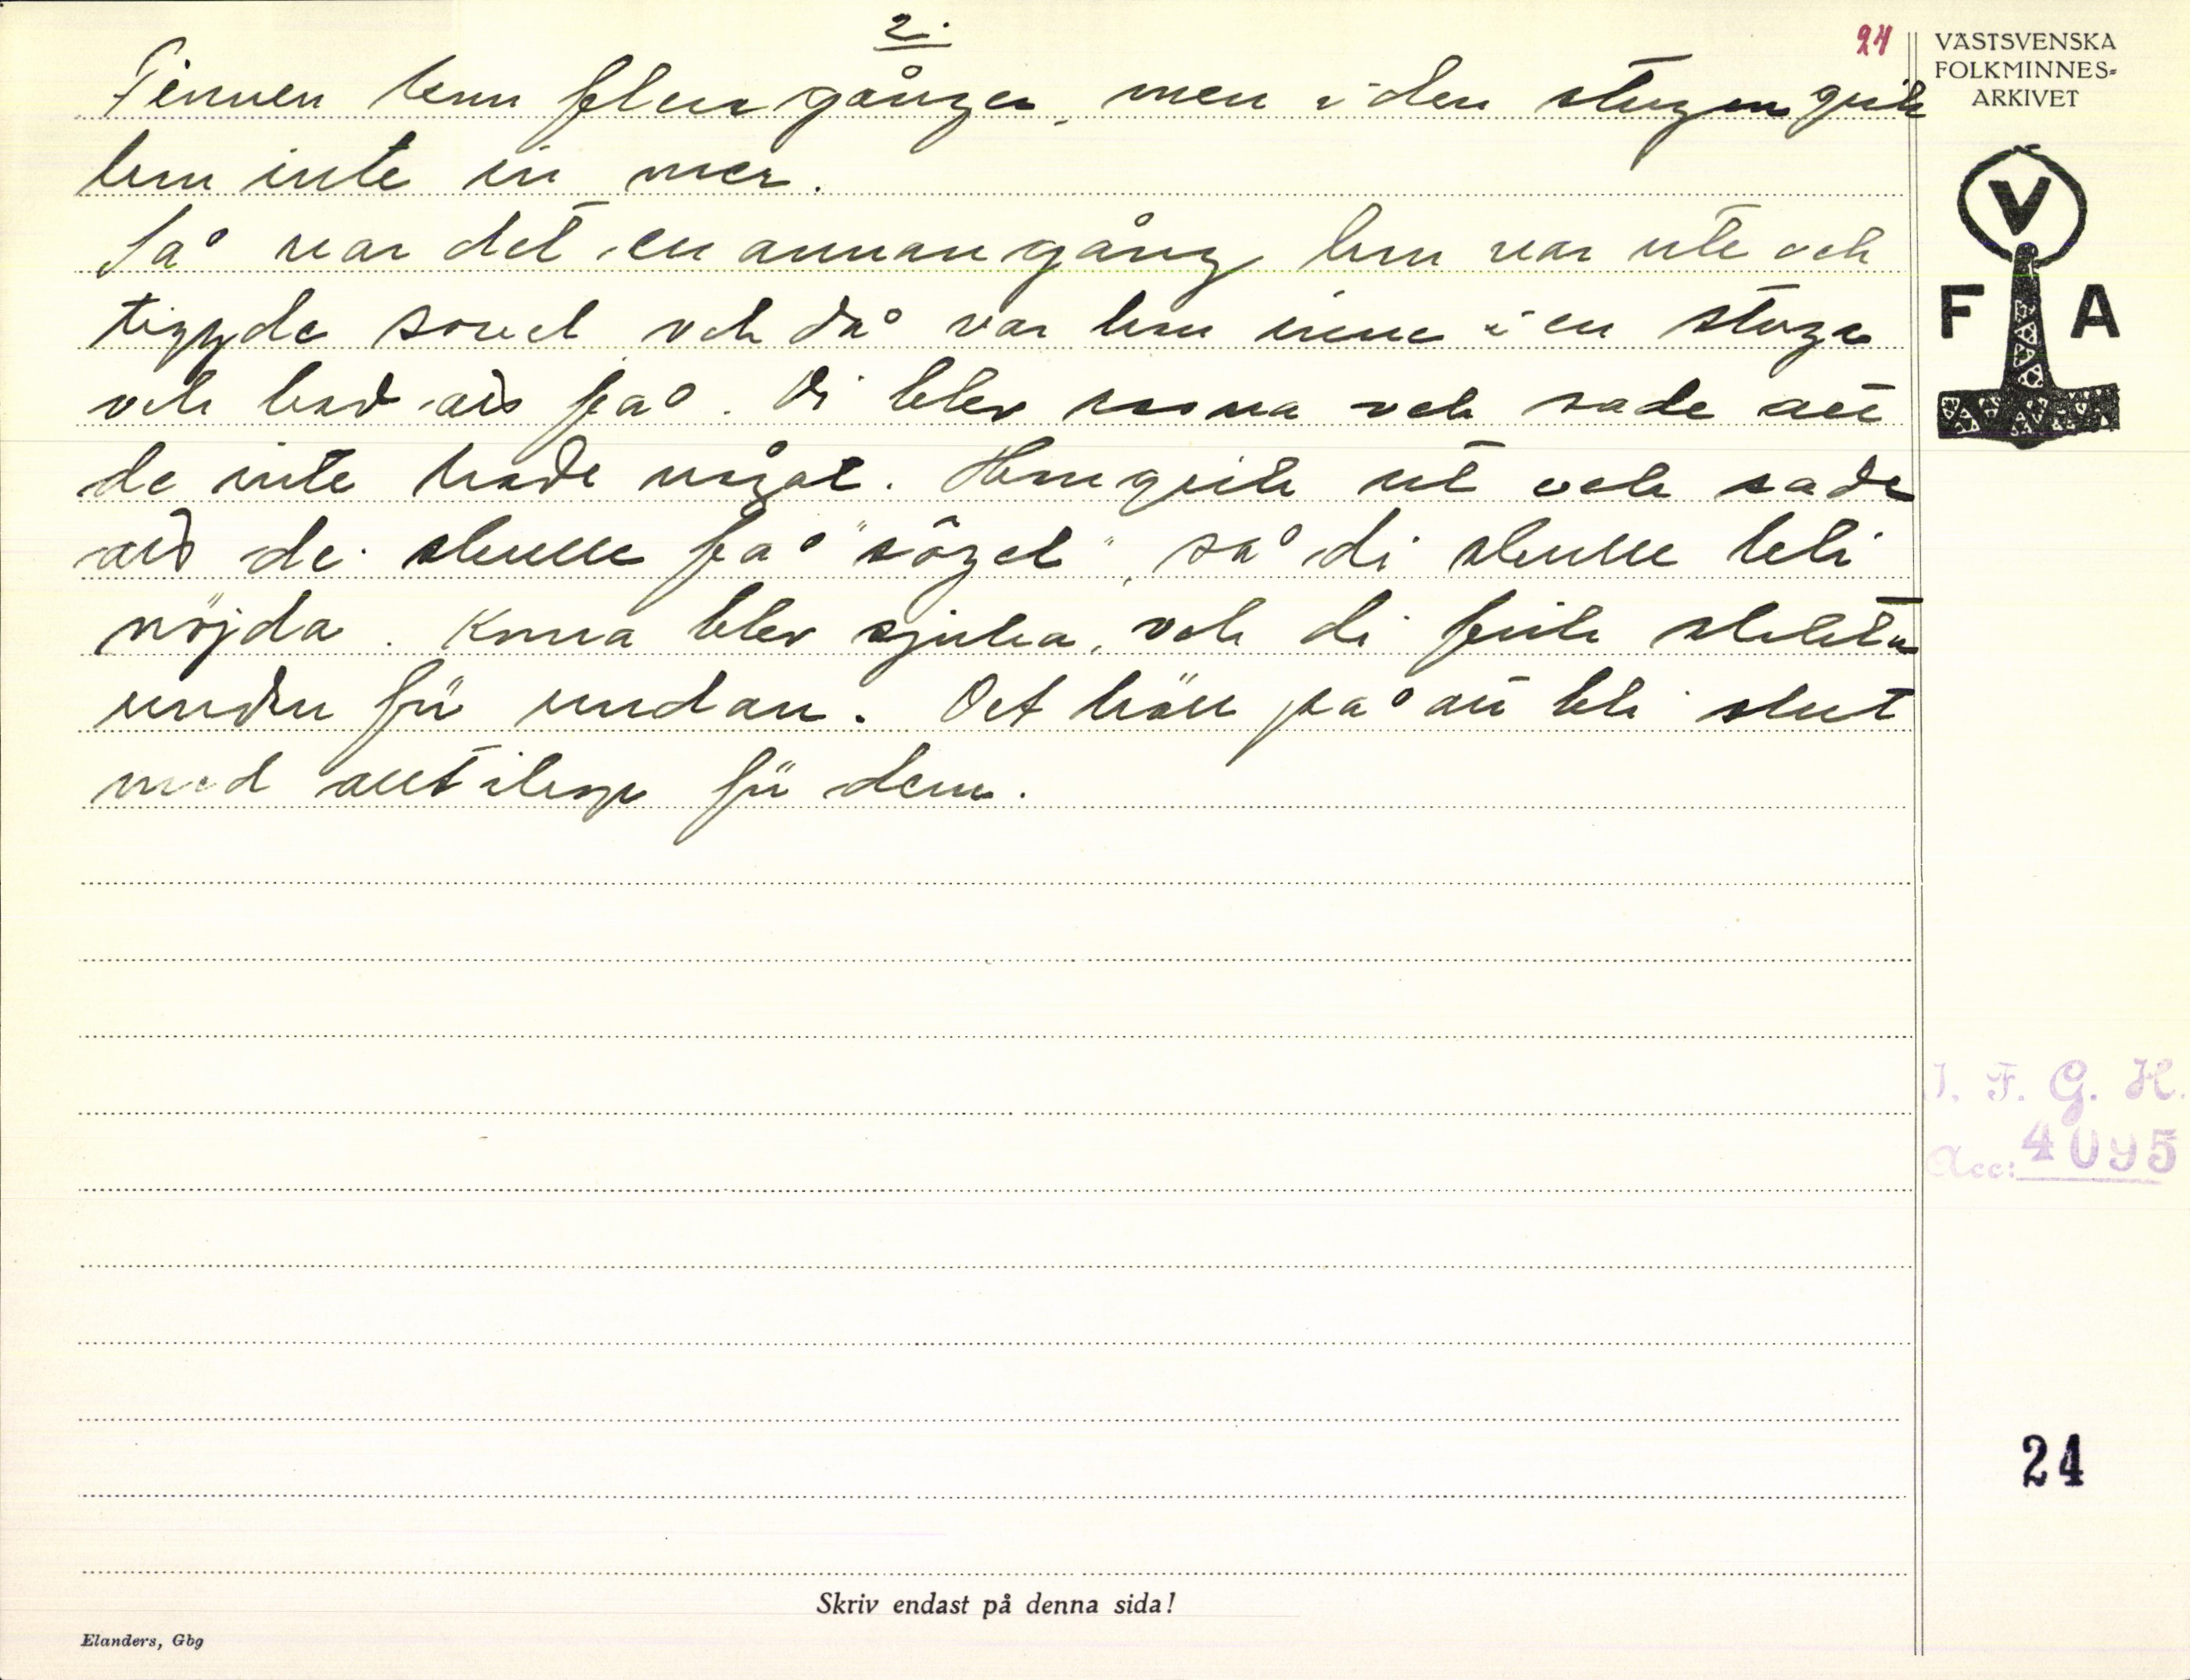 2.
24
VÄSTSVENSKA
FOLKMINNES-
ARKIVET
V
F A
Finnen kom flera gånger, men i den stugan gick
hon inte in mer.
Så var det en annan gång hon var ute och
tiggde sovel och då var hon inne i en stuga
och bad att få. Di blev onna och sade att
de inte hade något. Hon gick ut och sade
att de skulle få "sögel", så di skulle bli
nöjda. Korna blev sjuka, och di fick slakta
undan för undan. Det höll på att bli slut
med allt ihop för dem.
I. F. G. H.
Acc: 4095
24
Skriv endast på denna sida!
Elanders, Gbg